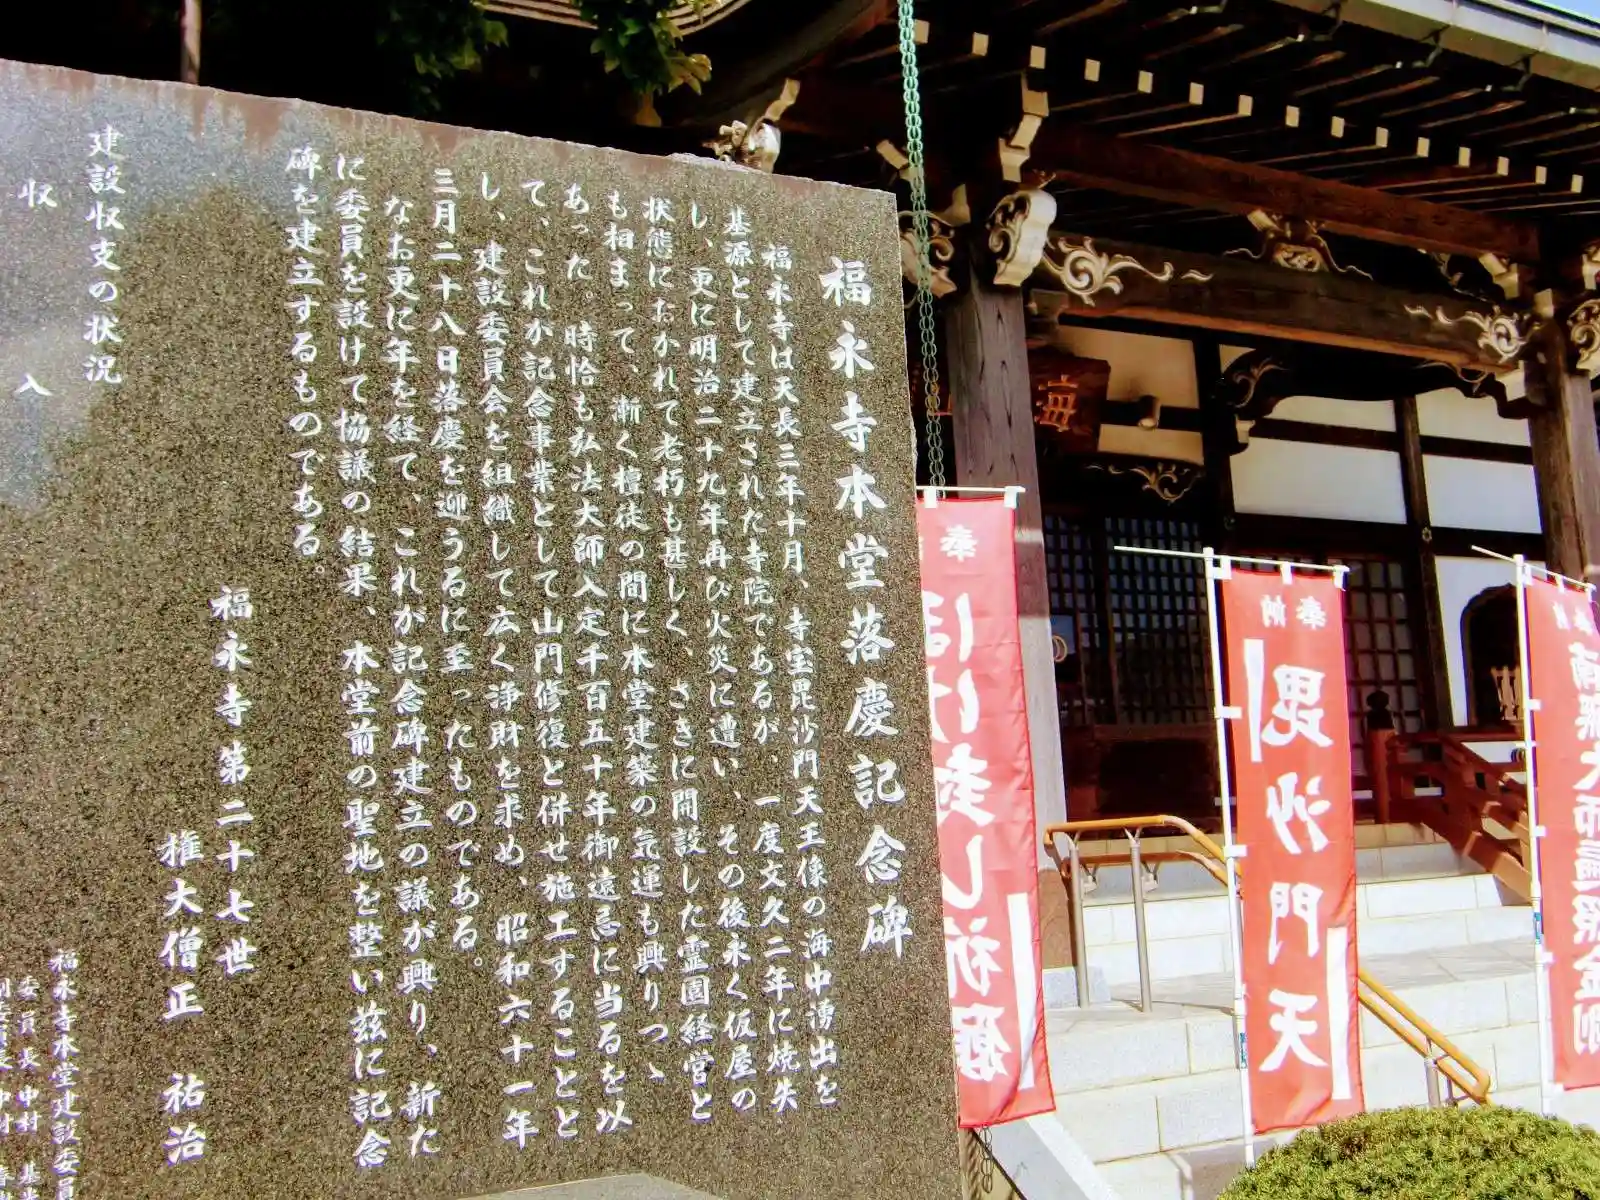 福永寺本堂落慶記念碑
福永寺は天長三年十月、寺宝毘沙門天王像の海中湧出を
基源として建立された寺院であるが、一度文久二年に焼失
し、更に明治二十九年再び火災に遭い、その後永く仮屋の
状態におかれて老朽も甚しく、さきに開設した霊園経営と
も相まって、漸く檀徒の間に本堂建築の気運も興りつゝ
あった。時恰も弘法大師入定千百五十年御遠忌に当るを以
て、これが記念事業として山門修復と併せ施工することと
し、建設委員会を組織して広く浄財を求め、昭和六十一年
三月二十八日落慶を迎うるに至ったものである。
なお更に年を経て、これが記念碑建立の議が興り、新た
に委員を設けて協議の結果、本堂前の聖地を整い玆に記念
碑を建立するものである。
福永寺第二十七世
権大僧正 祐治
建設収支の状況
収入
福永寺本堂建設委員
委員長 中村
奉
ぼけ封じ祈願
奉納
毘沙門天
奉納
南無大師遍照金剛
海